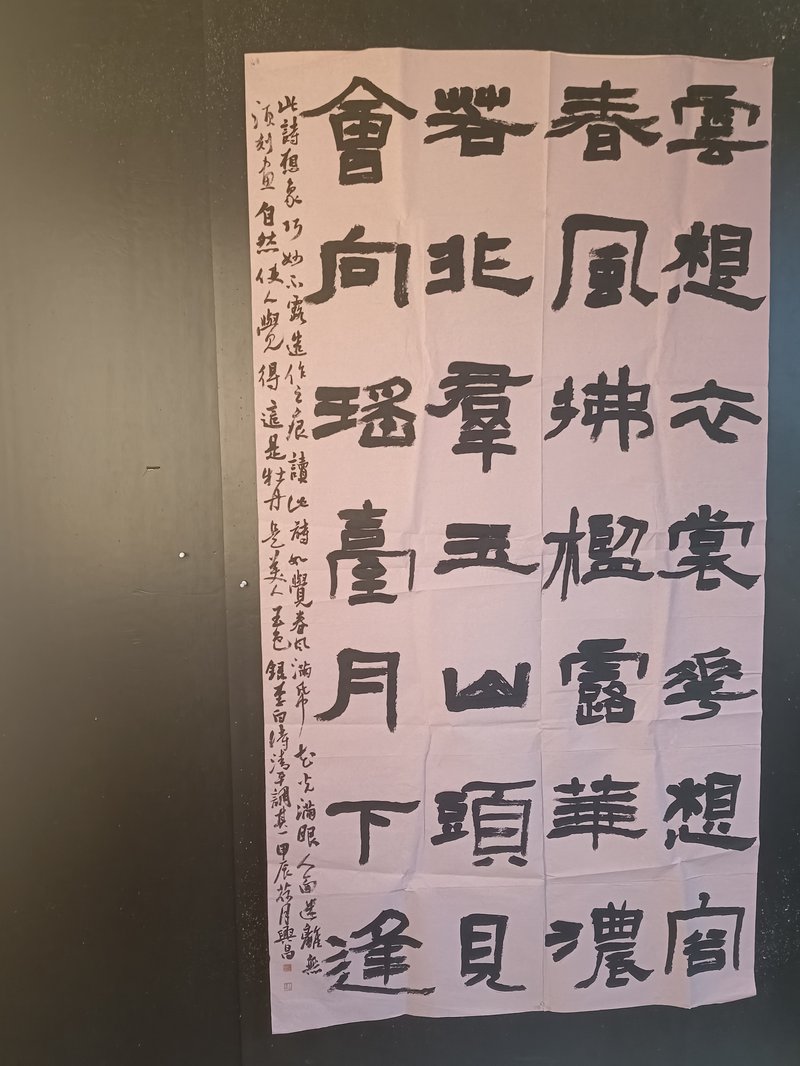 雲想衣裳花想容
春風拂檻露華濃
若非羣玉山頭見
會向瑤臺月下逢
此詩想象巧妙不露造作之痕讀此詩如覺春风滿帋花光滿眼人面迷離無
須刻畫自然使人覺得這是牡丹是美人玉色 錄李白詩清平調其一甲辰月興昌